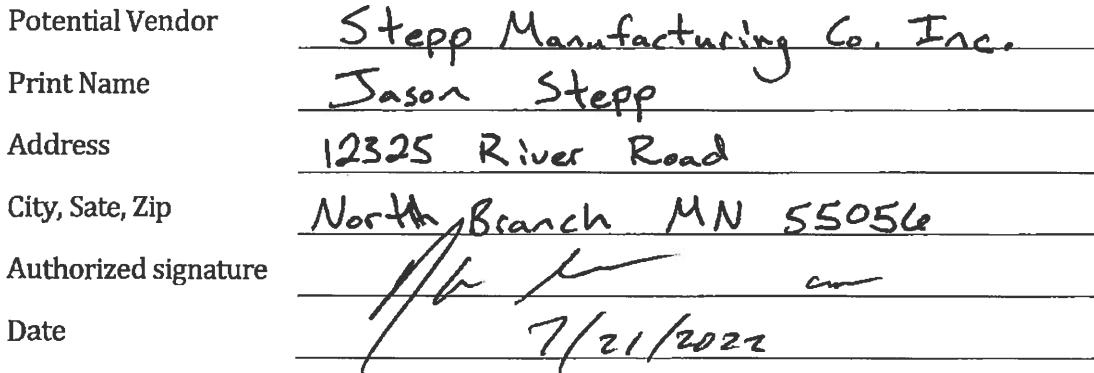 Potential Vendor Stepp Manufacturing Co. Inc.
Print Name Jason Stepp
Address 12325 River Road
City, Sate, Zip North Branch MN 55056
Authorized signature
Date 7/21/2022